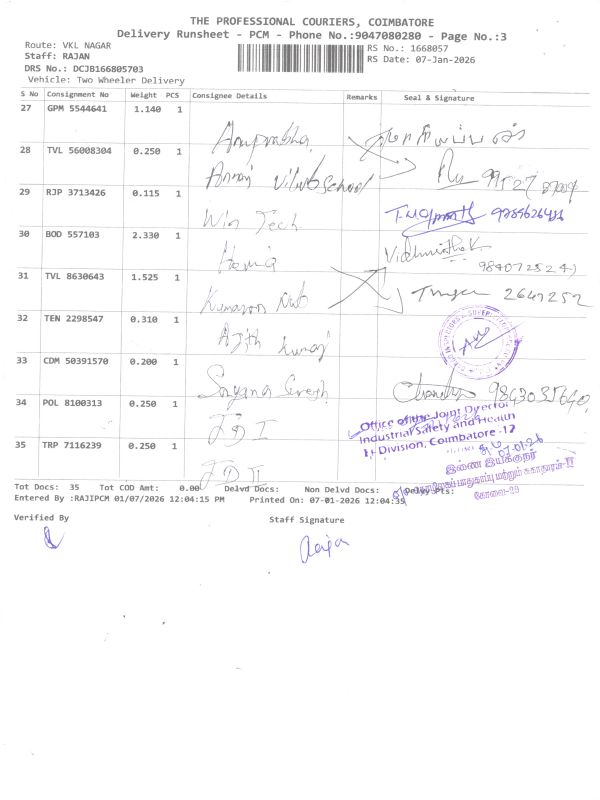 THE PROFESSIONAL COURIERS, COIMBATORE
Delivery Runsheet - PCM - Phone No.:9047080280 - Page No.:3
Route: VKL NAGAR
RS No.: 1668057
Staff: RAJAN
RS Date: 07-Jan-2026
DRS No.: DCJB166805703
Vehicle: Two Wheeler Delivery
S No Consignment No Weight PCS Consignee Details Remarks Seal & Signature
27 GPM 5544641 1.140 1
28 TVL 56008304 0.250 1
School
29 RJP 3713426 0.115 1
Win Tech
30 BOD 557103 2.330 1
Hema
31 TVL 8630643 1.525 1
2647252
32 TEN 2298547 0.310 1
Ajith Kumar
33 CDM 50391570 0.200 1
Suresh
34 POL 8100313 0.250 1
JD I
Office of the Joint Director
Industrial Safety and Health
Division, Coimbatore -12
35 TRP 7116239 0.250 1
JD II
07-01-26
இணை இயக்குநர்
பாதுகாப்பு மற்றும் சுகாதாரம்-II
கோவை
Tot Docs: 35 Tot COD Amt: 0.00 Delvd Docs: Non Delvd Docs: Delvy Pts:
Entered By :RAJIPCM 01/07/2026 12:04:15 PM Printed On: 07-01-2026 12:04:35
Verified By
Staff Signature